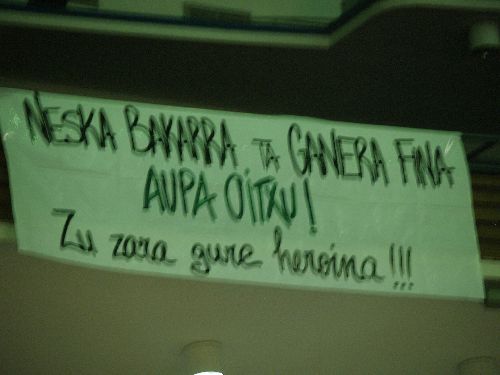 NESKA BAKARRA TA GANERA FINA
AUPA OITXU!
Zu zara gure heroina!!!